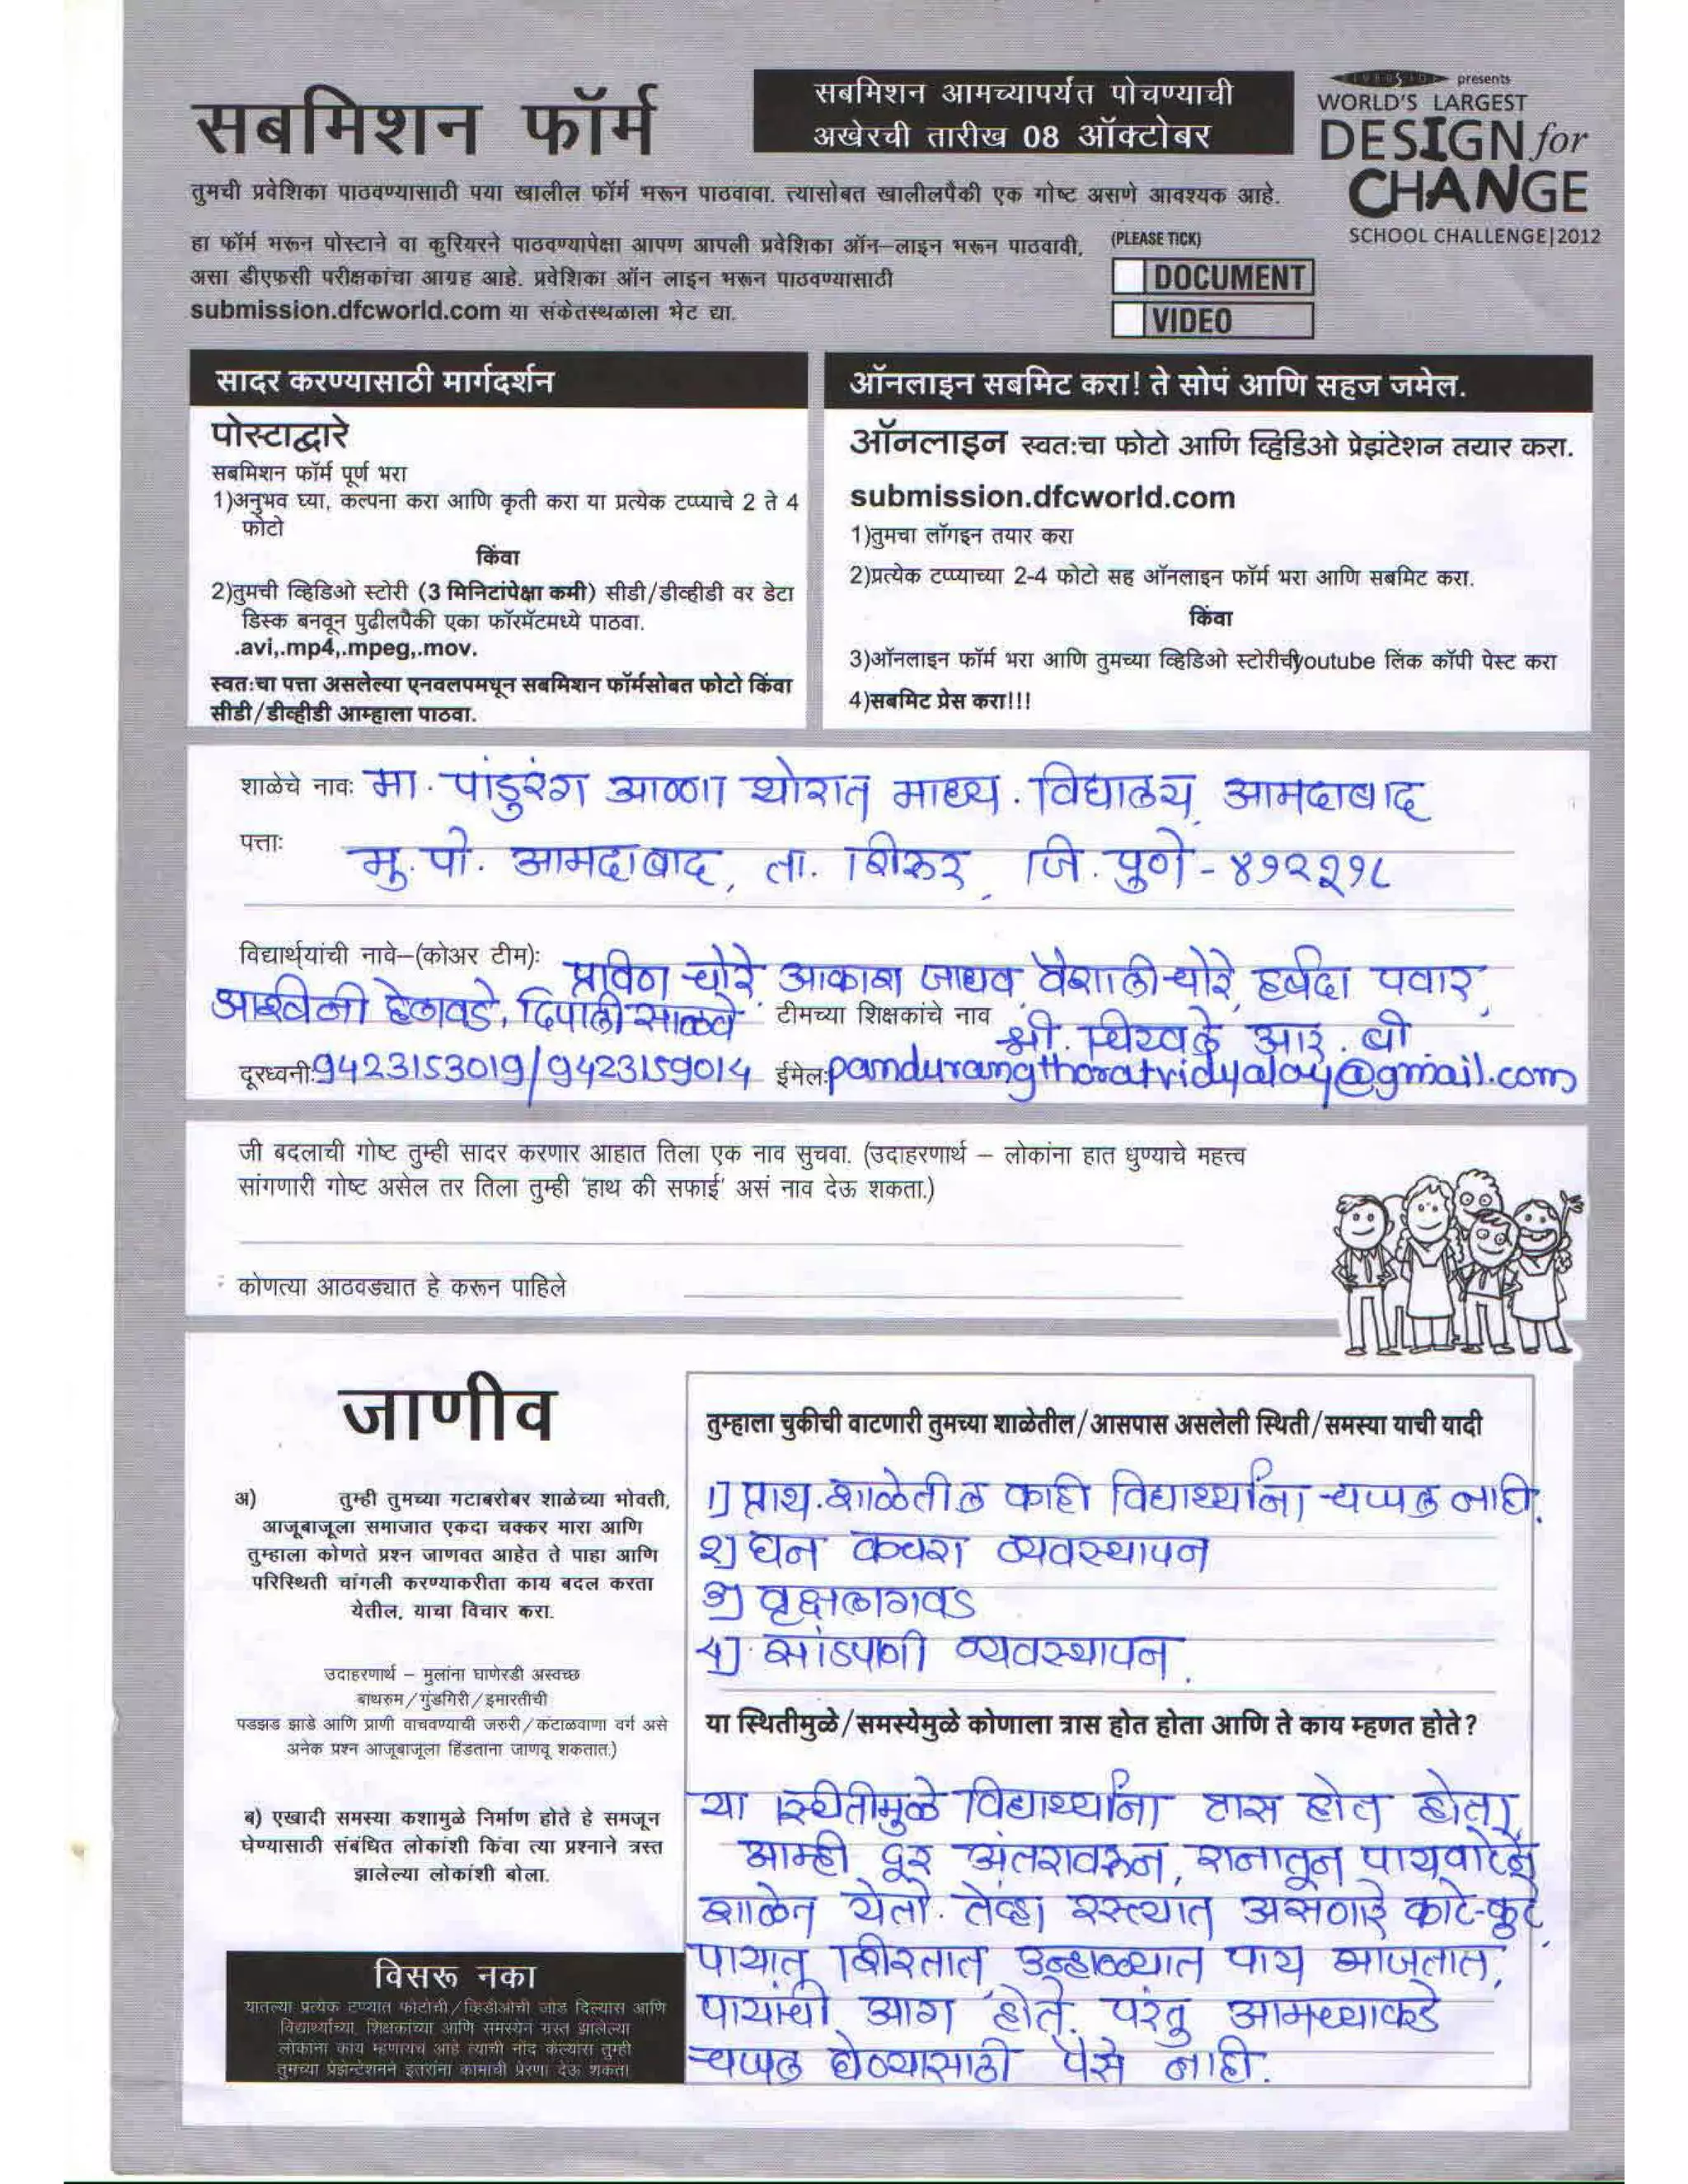 सबमिशन फॉर्म
सबमिशन आमच्यापर्यंत पोचण्याची
अखेरची तारीख 08 ऑक्टोबर
presents
WORLD'S LARGEST
DESIGN for
CHANGE
SCHOOL CHALLENGE|2012
तुमची प्रवेशिका पाठवण्यासाठी पया खालील फॉर्म भरून पाठवावा. त्यासोबत खालीलपैकी एक गोष्ट असणे आवश्यक आहे.
हा फॉर्म भरून पोस्टाने वा कुरियरने पाठवण्यापेक्षा आपण आपली प्रवेशिका ऑन–लाइन भरून पाठवावी,
असा डीएफसी परीक्षकांचा आग्रह आहे. प्रवेशिका ऑन लाइन भरून पाठवण्यासाठी
submission.dfcworld.com या संकेतस्थळाला भेट द्या.
(PLEASE TICK)
DOCUMENT
VIDEO
सादर करण्यासाठी मार्गदर्शन
पोस्टाद्वारे
सबमिशन फॉर्म पूर्ण भरा
1)अनुभव घ्या, कल्पना करा आणि कृती करा या प्रत्येक टप्प्याचे 2 ते 4
फोटो
किंवा
2)तुमची व्हिडिओ स्टोरी (3 मिनिटांपेक्षा कमी) सीडी/डीव्हीडी वर डेटा
डिस्क बनवून पुढीलपैकी एका फॉरमॅटमध्ये पाठवा.
.avi,.mp4,.mpeg,.mov.
स्वतःचा पत्ता असलेल्या एनवलपमधून सबमिशन फॉर्मसोबत फोटो किंवा
सीडी/डीव्हीडी आम्हाला पाठवा.
ऑनलाइन सबमिट करा! ते सोपं आणि सहज जमेल.
ऑनलाइन स्वतःचा फोटो आणि व्हिडिओ प्रेझंटेशन तयार करा.
submission.dfcworld.com
1)तुमचा लॉगइन तयार करा
2)प्रत्येक टप्प्याच्या 2-4 फोटो सह ऑनलाइन फॉर्म भरा आणि सबमिट करा.
किंवा
3)ऑनलाइन फॉर्म भरा आणि तुमच्या व्हिडिओ स्टोरीचीyoutube लिंक कॉपी पेस्ट करा
4)सबमिट प्रेस करा!!!
शाळेचे नावः मा. पांडुरंग आण्णा थोरात माध्य. विद्यालय, आमदाबाद
पत्ताः मु. पो. आमदाबाद, ता. शिरूर, जि. पुणे - ४१२२१८
विद्यार्थ्यांची नावे–(कोअर टीम): प्रविण घोरे, आकाश जाधव, वैशाली घोरे, हर्षदा पवार,
आश्विनी हेलावडे, दिपाली साळवे. टीमच्या शिक्षकांचे नाव श्री. आर. बी
दूरध्वनीः9423153019/9423159014 ईमेलः pandurangthoratvidyalay@gmail.com
जी बदलाची गोष्ट तुम्ही सादर करणार आहात तिला एक नाव सुचवा. (उदाहरणार्थ – लोकांना हात धुण्याचे महत्त्व
सांगणारी गोष्ट असेल तर तिला तुम्ही 'हाथ की सफाई' असं नाव देऊ शकता.)
कोणत्या आठवड्यात हे करून पाहिले
जाणीव
अ) तुम्ही तुमच्या गटाबरोबर शाळेच्या भोवती,
आजूबाजूला समाजात एकदा चक्कर मारा आणि
तुम्हाला कोणते प्रश्न जाणवत आहेत ते पाहा आणि
परिस्थिती चांगली करण्याकरीता काय बदल करता
येतील, याचा विचार करा.
उदाहरणार्थ – मुलांना घाणेरडी अस्वच्छ
बाथरुम/गुंडगिरी/इमारतीची
पडझड झाडे आणि प्राणी वाचवण्याची जरुरी/कंटाळवाणा वर्ग असे
अनेक प्रश्न आजूबाजूला हिंडताना जाणवू शकतात.)
ब) एखादी समस्या कशामुळे निर्माण होते हे समजून
घेण्यासाठी संबंधित लोकांशी किंवा त्या प्रश्नाने त्रस्त
झालेल्या लोकांशी बोला.
विसरू नका
यातल्या प्रत्येक टप्प्यात फोटोची/व्हिडीओची जोड दिल्यास आणि
विद्यार्थ्यांच्या, शिक्षकांच्या आणि समस्येनं ग्रस्त झालेल्या
लोकांना काय म्हणायचं आहे त्याची नोंद केल्यास तुम्ही
तुमच्या प्रेझेन्टेशनने इतरांना कामाची प्रेरणा देऊ शकता
तुम्हाला चुकीची वाटणारी तुमच्या शाळेतील/आसपास असलेली स्थिती/समस्या याची यादी
1] प्राथ. शाळेतील काही विद्यार्थ्यांना चप्पल नाही.
२] घन कचरा व्यवस्थापन
३] वृक्षलागवड
४] सांडपाणी व्यवस्थापन.
या स्थितीमुळे/समस्येमुळे कोणाला त्रास होत होता आणि ते काय म्हणत होते?
या स्थितीमुळे विद्यार्थ्यांना त्रास होत होता,
आम्ही दूर अंतरावरून, रानातून पायवाटेने
शाळेत येतो. तेव्हा रस्त्यात असणारे काटे-कुटे
पायात शिरतात, उन्हाळ्यात पाय भाजतात,
पायांची आग होते. परंतु आमच्याकडे
चप्पल घेण्यासाठी पैसे नाही.